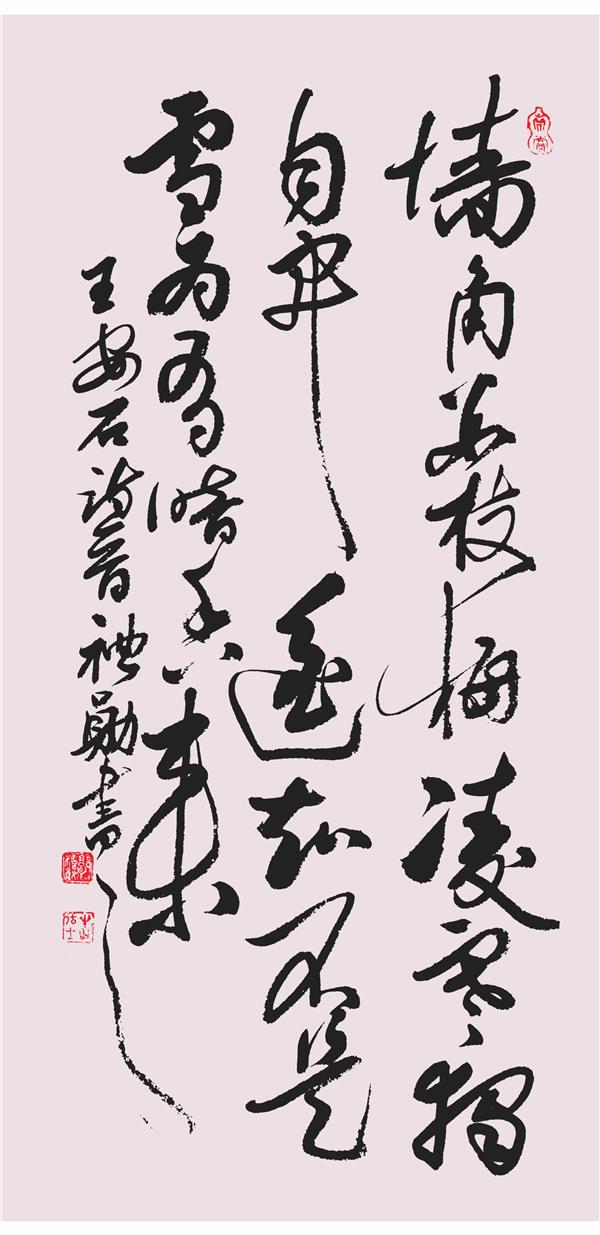 墙角数枝梅凌寒独
自开遥知不是
雪为有暗香来
王安石诗 禮勛書